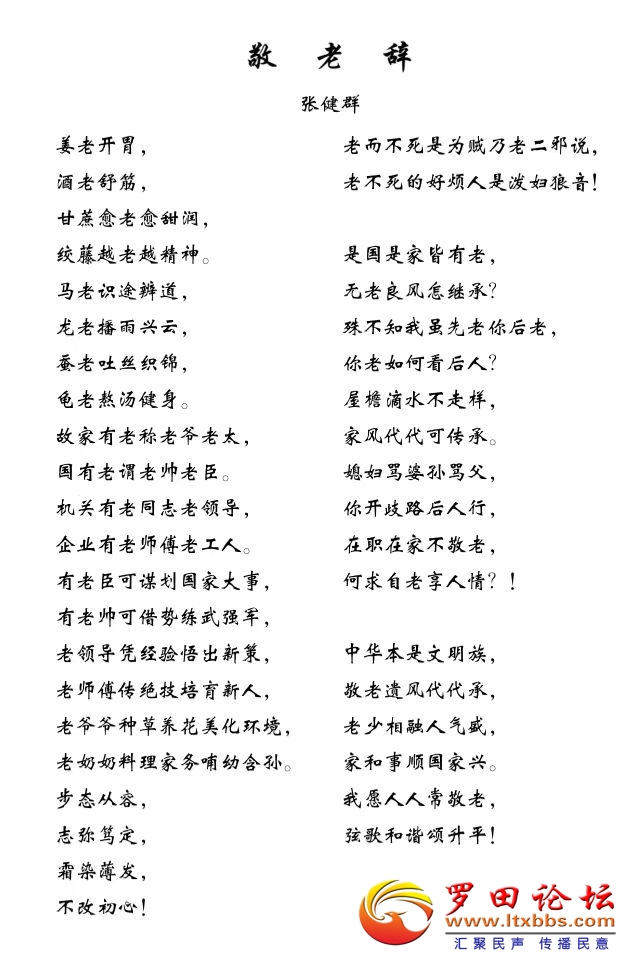 敬老辞
张健群
姜老开胃，
酒老舒筋，
甘蔗愈老愈甜润，
绞藤越老越精神。
马老识途辨道，
龙老播雨兴云，
蚕老吐丝织锦，
龟老熬汤健身。
故家有老称老爷老太，
国有老谓老帅老臣。
机关有老同志老领导，
企业有老师傅老工人。
有老臣可谋划国家大事，
有老帅可借势练武强军，
老领导凭经验悟出新策，
老师傅传绝技培育新人，
老爷爷种草养花美化环境，
老奶奶料理家务哺幼含孙。
步态从容，
志弥笃定，
霜染薄发，
不改初心！
老而不死是为贼乃老二邪说，
老不死的好烦人是泼妇狼音！
是国是家皆有老，
无老良风怎继承？
殊不知我虽先老你后老，
你老如何看后人？
屋檐滴水不走样，
家风代代可传承。
媳妇骂婆孙骂父，
你开歧路后人行，
在职在家不敬老，
何求自老享人情？！
中华本是文明族，
敬老遗风代代承，
老少相融人气盛，
家和事顺国家兴。
我愿人人常敬老，
弦歌和谐颂升平！
罗田论坛
www.ltxbbs.com
汇聚民声 传播民意